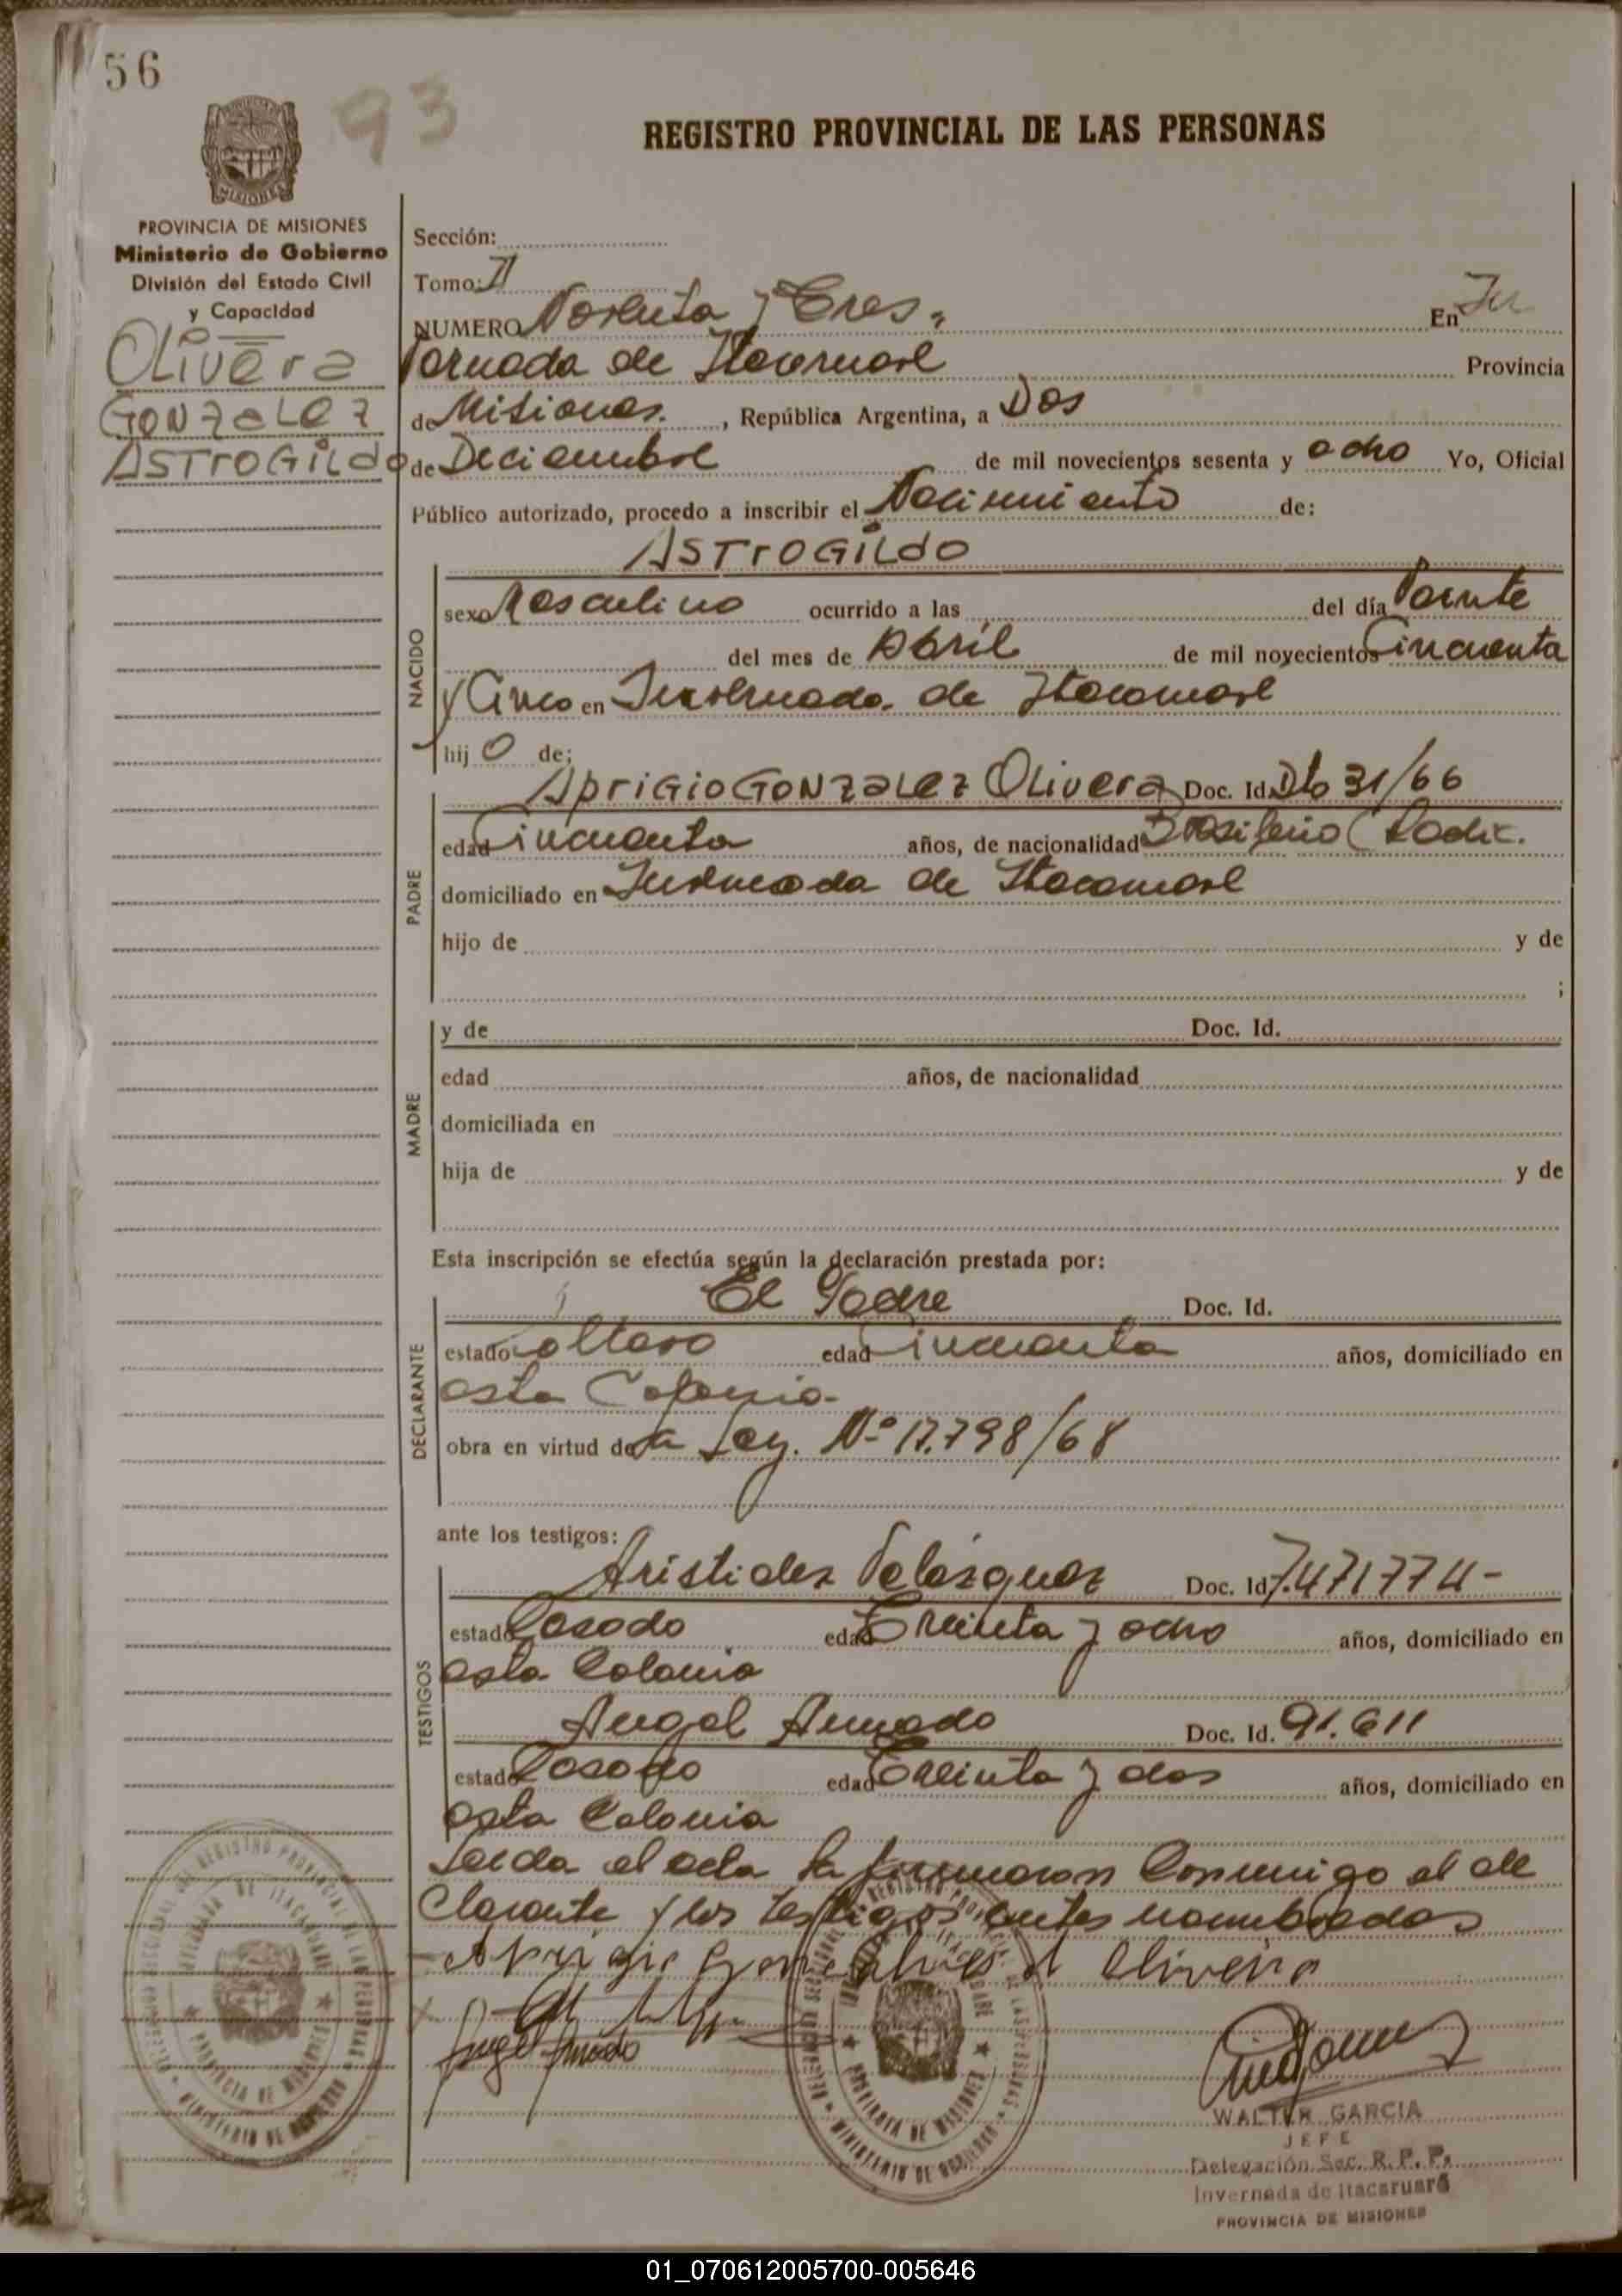 56
93
REGISTRO PROVINCIAL DE LAS PERSONAS
MISIONES
PROVINCIA DE MISIONES
Ministerio de Gobierno
División del Estado Civil
y Capacidad
Olivera
GONZALEZ
ASTROGILDO
Sección:
Tomo: II
NUMERO Noventa y Tres. En In
vernada de Itacaruaré Provincia
de Misiones. , República Argentina, a Dos
de Deciembre de mil novecientos sesenta y ocho Yo, Oficial
Público autorizado, procedo a inscribir el Nacimiento de:
ASTROGILDO
NACIDO
sexo Masculino ocurrido a las del día Veinte
del mes de Abril de mil novecientos Cincuenta
y Cinco en Invernada de Itacaruaré
hij o de:
PADRE
APRIGIO GONZALEZ OLIVERA Doc. Id. Dto 31/66
edad Cincuenta años, de nacionalidad Brasileño (Radic.
domiciliado en Invernada de Itacaruaré
hijo de y de
;
MADRE
y de Doc. Id.
edad años, de nacionalidad
domiciliada en
hija de y de
Esta inscripción se efectúa según la declaración prestada por:
DECLARANTE
El Padre Doc. Id.
estado Soltero edad Cincuenta años, domiciliado en
esta Colonia
obra en virtud de la Ley. Nº 17.798/68
ante los testigos:
TESTIGOS
Arístides Velázquez Doc. Id. 7.471774-
estado Casado edad Treinta y ocho años, domiciliado en
esta Colonia
Angel Amado Doc. Id. 91.611
estado Casado edad Treinta y dos años, domiciliado en
esta Colonia
Leida el acta la firmaron Conmigo el de
Clarante y los testigos antes nombrados
Angel Amado
WALTER GARCIA
JEFE
Delegación Sec. R. P. P.
Invernada de Itacaruaré
PROVINCIA DE MISIONES
01_070612005700-005646